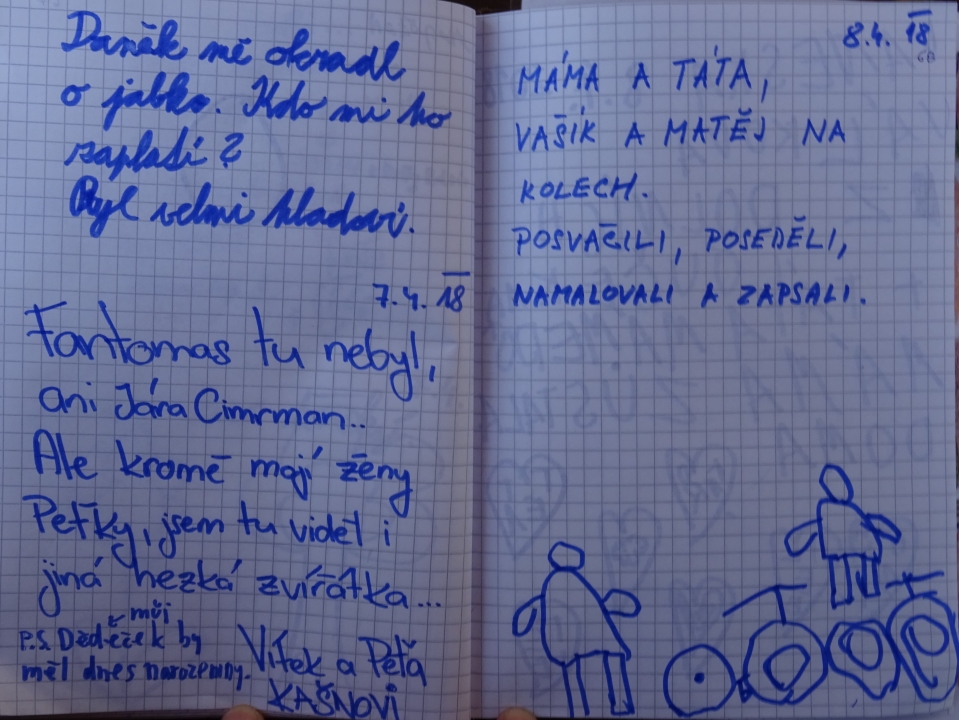 Daněk mě okradl
o jabko. Kdo mi ho
zaplatí?
Byl velmi hladoví.
7.4. 18
Fantomas tu nebyl,
ani Jára Cimrman..
Ale kromě mojí ženy
Peťky, jsem tu viděl i
jiná hezká zvířátka...
P.S. Děděček by
můj
měl dnes narozeniny.
Vítek a Peťa
KAŠNOVI
8.4. 18
MÁMA A TÁTA,
VAŠÍK A MATĚJ NA
KOLECH.
POSVAČILI, POSEDĚLI,
NAMALOVALI A ZAPSALI.